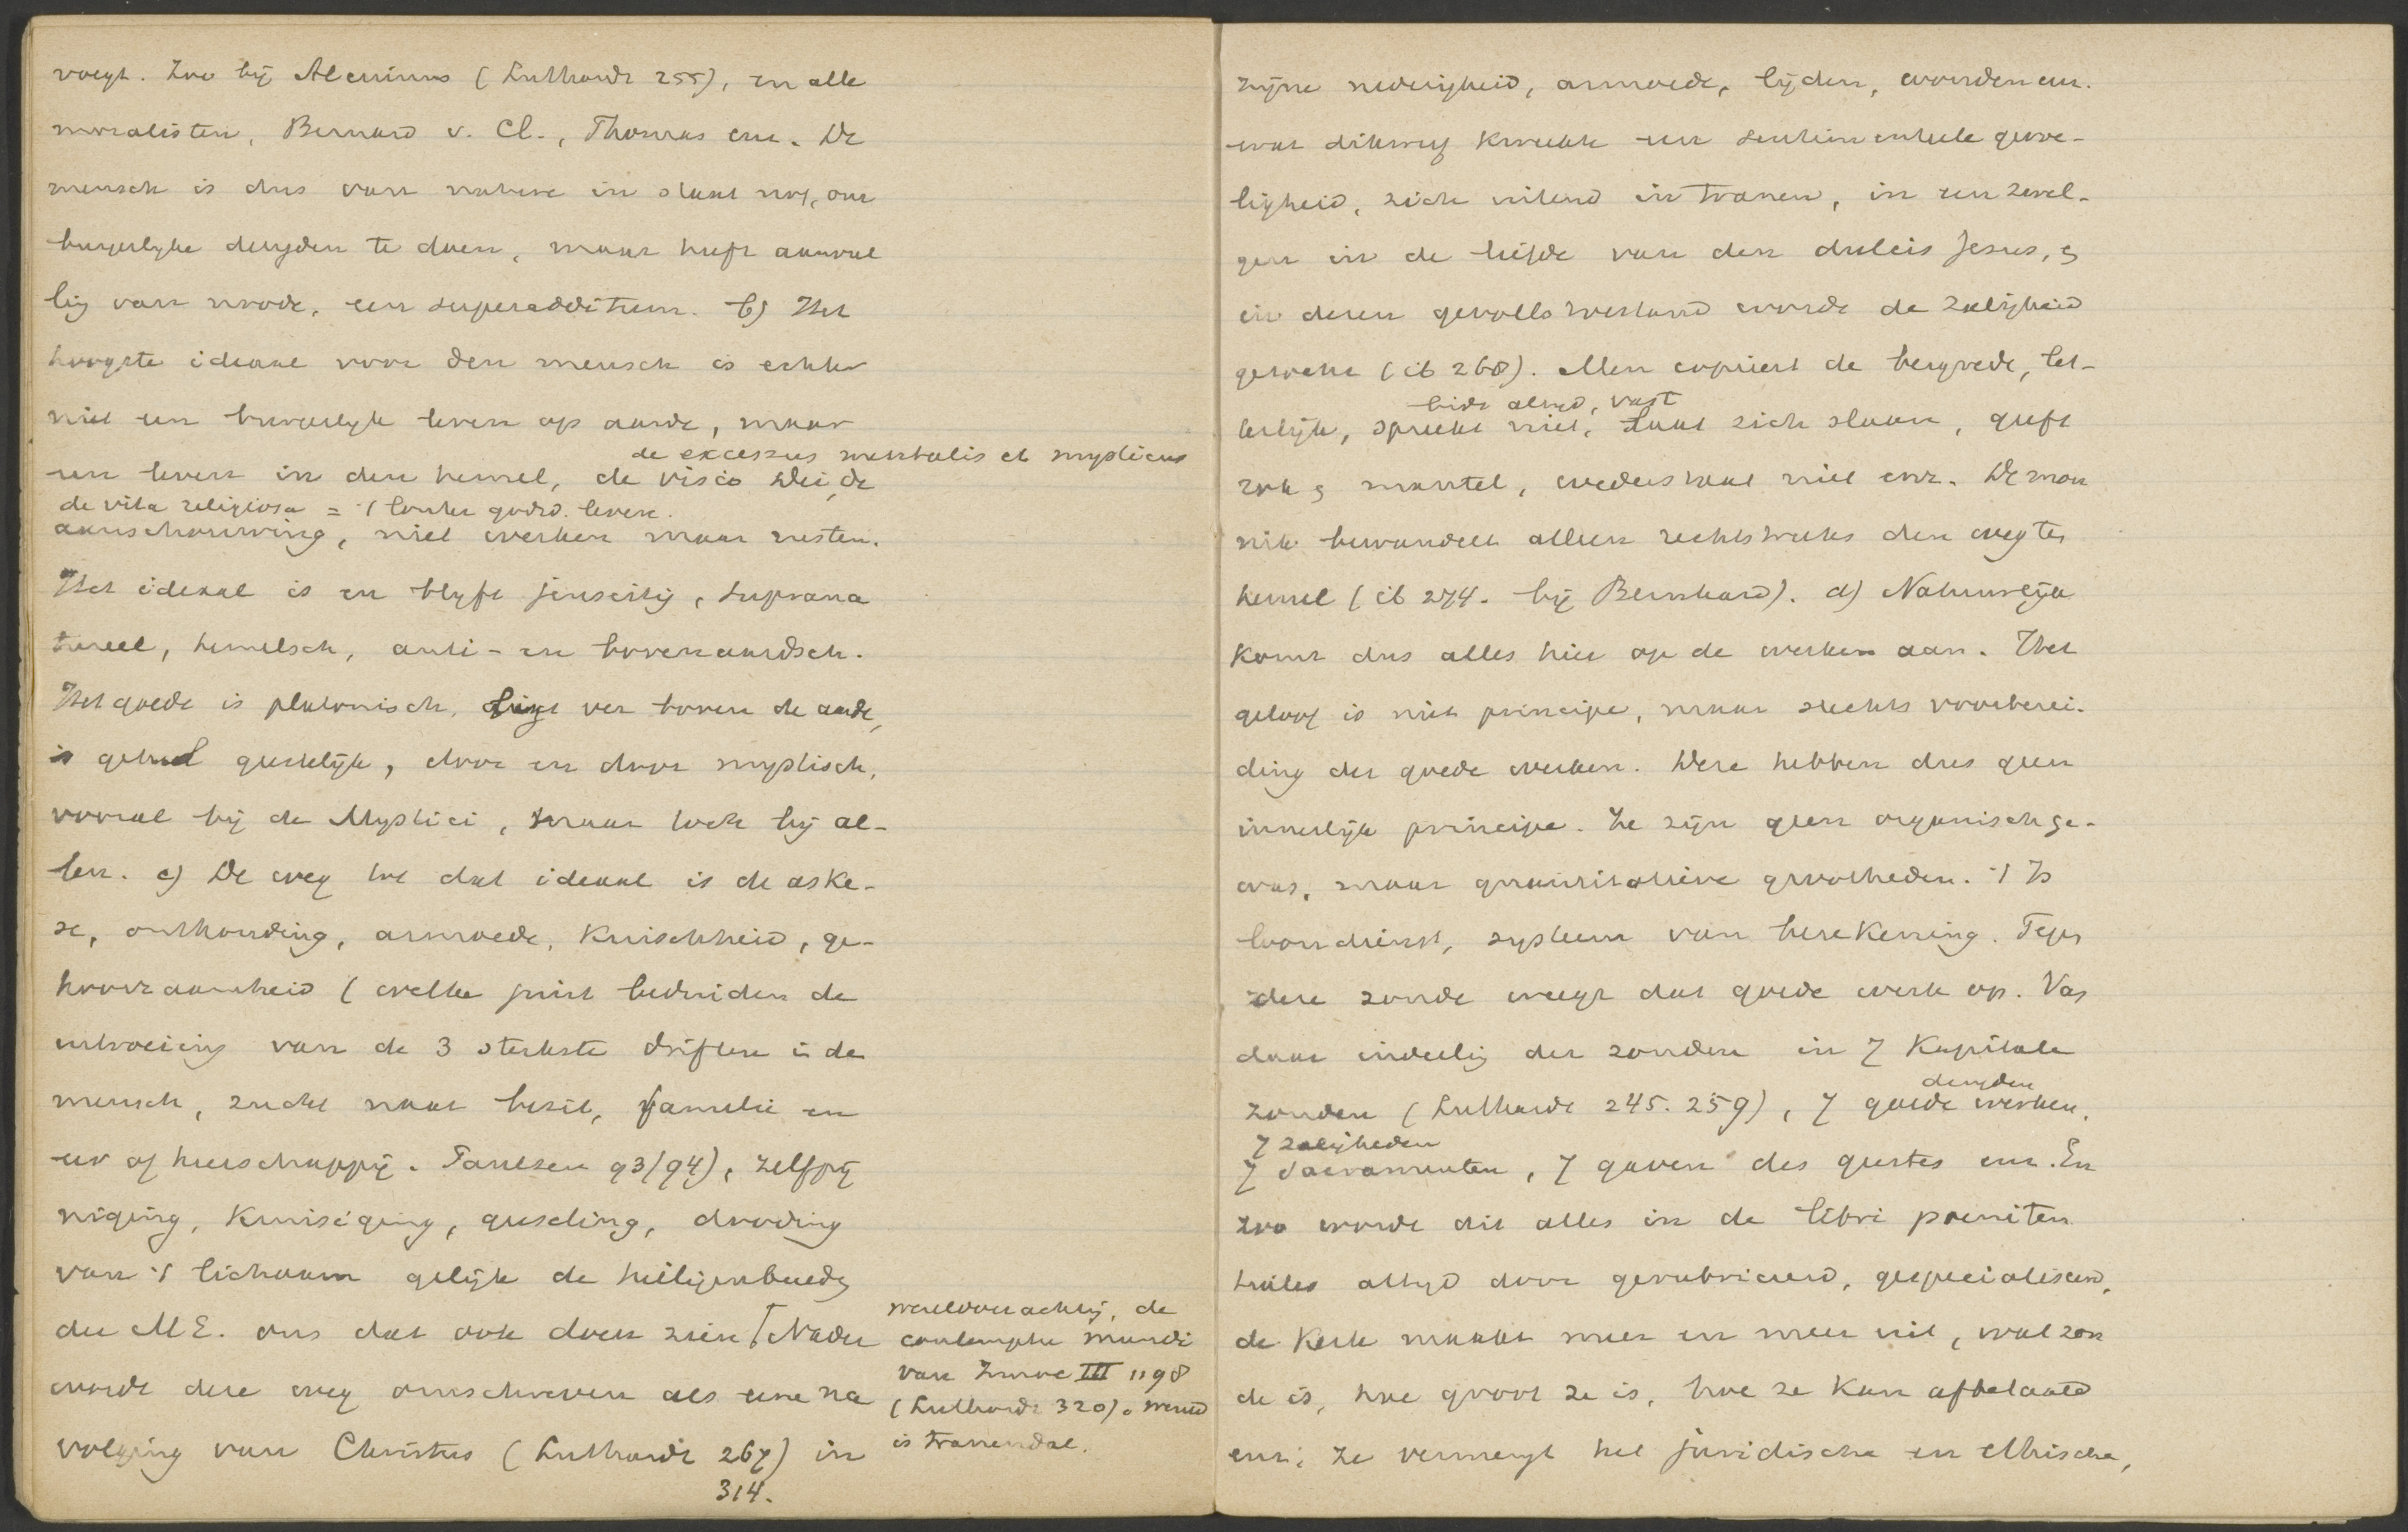 voegt. Zoo bij Alcuinus (Luthardt 255), en alle
moralisten, Bernard v. Cl., Thomas enz. De
mensch is dus van nature in staat nog, om
burgerlyke deugden te doen, maar heeft aanvul
lig van noode, een superadditum. b) Het
hoogste ideaal voor den mensch is echter
niet een burgerlyk leven op aarde, maar
de excessus mentalis et mysticus
een leven in den hemel, de visio Dei, de
de vita religiosa = 't louter godsd. leven.
aanschouwing, niet werken maar rusten.
Het ideaal is en blyft jenseitig, suprana
tureel, hemelsch, anti- en bovenaardsch.
Het goede is platonisch, ligt ver boven de aarde,
is geheel geestelijk, door en door mystisch,
vooral bij de Mystici, maar ook bij al-
len. c) De weg tot dat ideaal is de aske-
se, onthouding, armoede, kuischheid, ge-
hoorzaamheid (welke juist bedoelden de
uitroeiing van de 3 sterkste driften in de
mensch, zucht naar bezit, familie en
eer of heerschappij. Paulsen 93/94), zelfpij
niging, kruisiging, geeseling, dooding
van 't lichaam gelijk de heiligenbeelde
der ME. ons dat ook doen zien [Nader
wereldverachting, de
contemptu mundi
van Innoc III 1198
(Luthardt 320). wereld
is tranendal.
wordt deze weg omschreven als eene na
volging van Christus (Luthardt 267) in
314.
zijne nederigheid, armoede, lijden, wonden enz.
wat dikwijls kweekte een sentimenteele gevoe-
ligheid, zich uitend in tranen, in een zwel-
gen in de liefde van den dulcis Jesus, &
in dezen gevoelstoestand wordt de zaligheid
gezocht (ib 268). Men copieert de bergrede, let-
bidt altyd, vast
terlijk, spreekt niet, laat zich slaan, geeft
rok & mantel, wederstaat niet enz. De mon
nik bewandelt alleen rechtstreeks den weg ter
hemel (ib 274. bij Bernhard). d) Natuurlijk
komt dus alles hier op de werken aan. Het
geloof is niet principe, maar slechts voorberei-
ding der goede werken. Deze hebben dus geen
innerlijk principe. Ze zijn geen organisch ge-
was, maar quantitatieve grootheden. 't Is
loondienst, systeem van berekening. Tegen
deze zonde weegt dat goede werk op. Van
daar indeelig der zonden in 7 Kapitale
deugden
zonden (Luthardt 245. 259), 7 goede werken,
7 zaligheden
7 Sacramenten, 7 gaven des geestes enz. En
zoo wordt dit alles in de libri poeniten
tiales altyd door gerubriceerd, gespecialiseerd,
de Kerk maakt meer en meer uit, wat zon
de is, hoe groot ze is, hoe ze kan afbetaald
enz; ze vermengt het juridische en ethische,